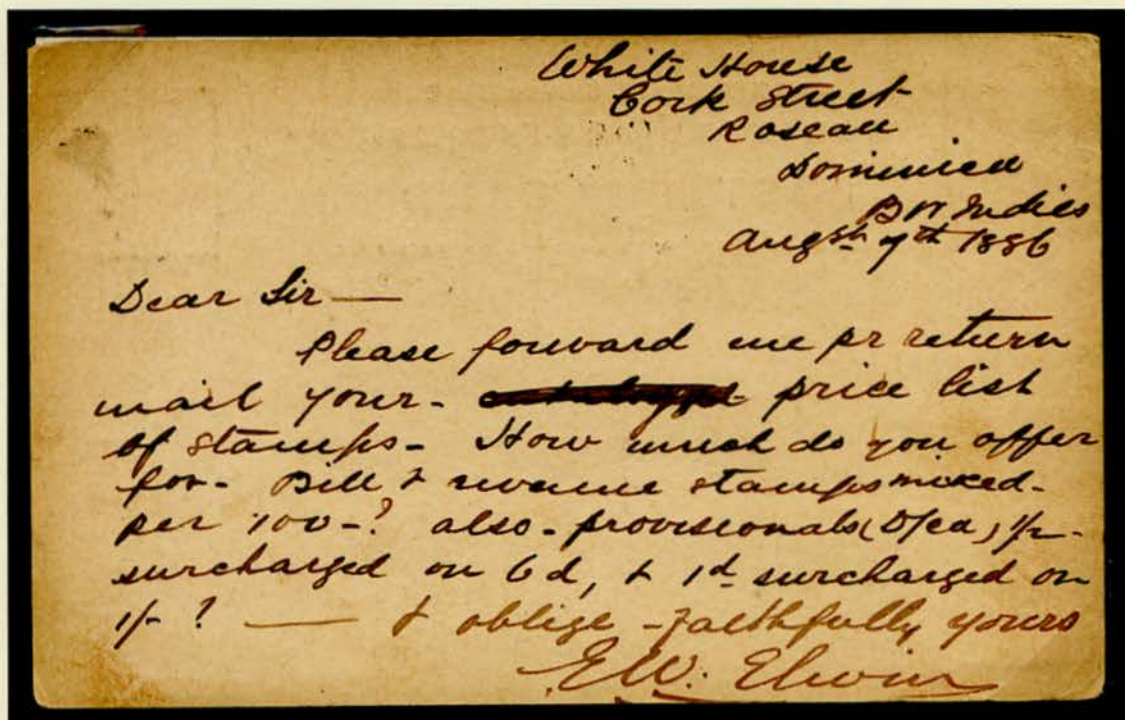 White House
Cork Street
Roseau
Dominica
B W Indies
Augst. 7th 1886
Dear Sir —
Please forward me pr return
mail your - price list
of stamps - How much do you offer
for - Bill & revenue stamps mixed -
per 100 - ? also - provisionals (D/ca) 1/2 -
surcharged on 6d, & 1d surcharged on
1/- ? — & oblige - faithfully yours
E.W. Elwin